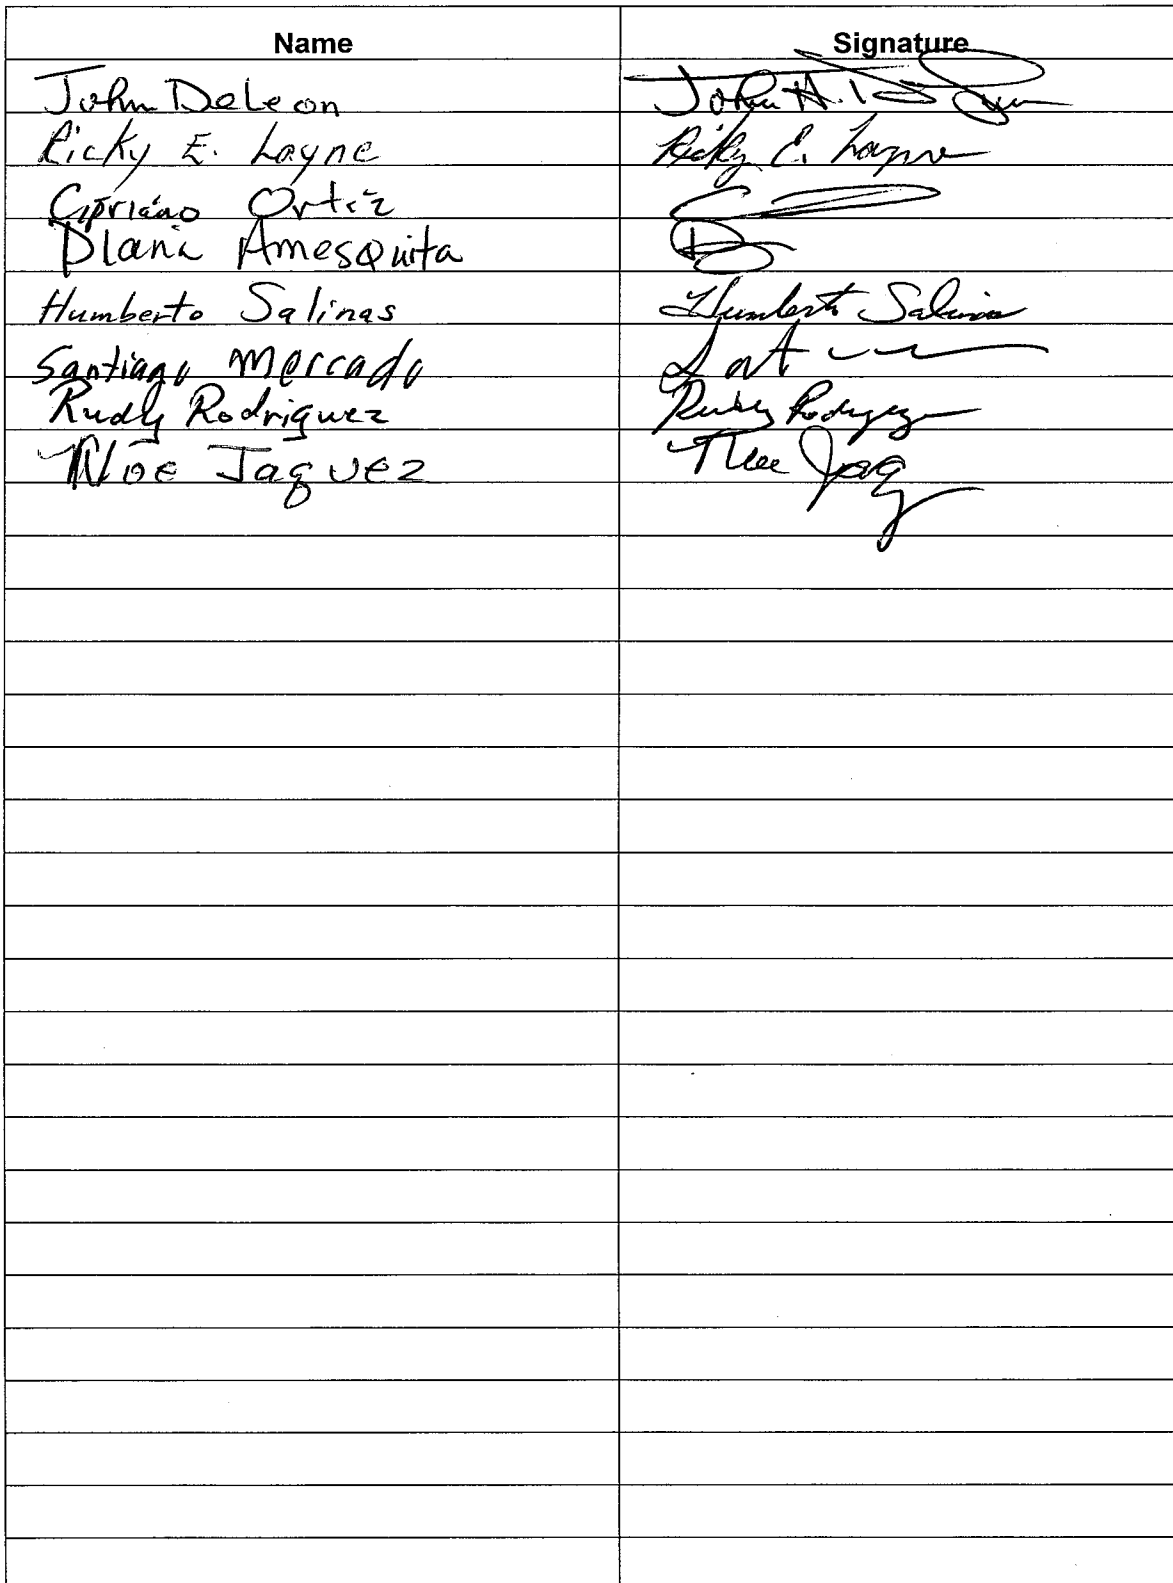 Name Signature
John DeLeon John H.
Ricky E. Layne Ricky E. Layne
Cipriano Ortiz
Diana Amesquita
Humberto Salinas Humberto Salinas
Santiago Mercado
Rudy Rodriguez Rudy Rodriguez
Noe Jaquez Noe Jaq